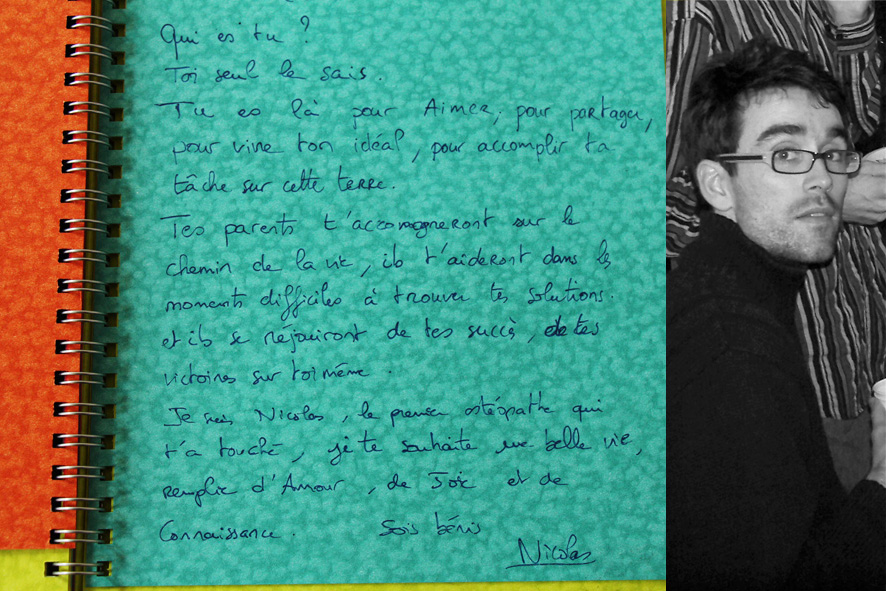 Qui es' tu ?
Toi seul le sais.
Tu es là pour Aimer, pour partager,
pour vivre ton idéal, pour accomplir ta
tâche sur cette terre.
Tes parents t'accompagneront sur le
chemin de la vie, ils t'aideront dans les
moments difficiles à trouver tes solutions.
et ils se réjouiront de tes succès, de tes
victoires sur toi même.
Je suis Nicolas, le premier ostéopathe qui
t'a touché, je te souhaite une belle vie,
remplie d'Amour, de Joie et de
Connaissance. Sois bénis
Nicolas